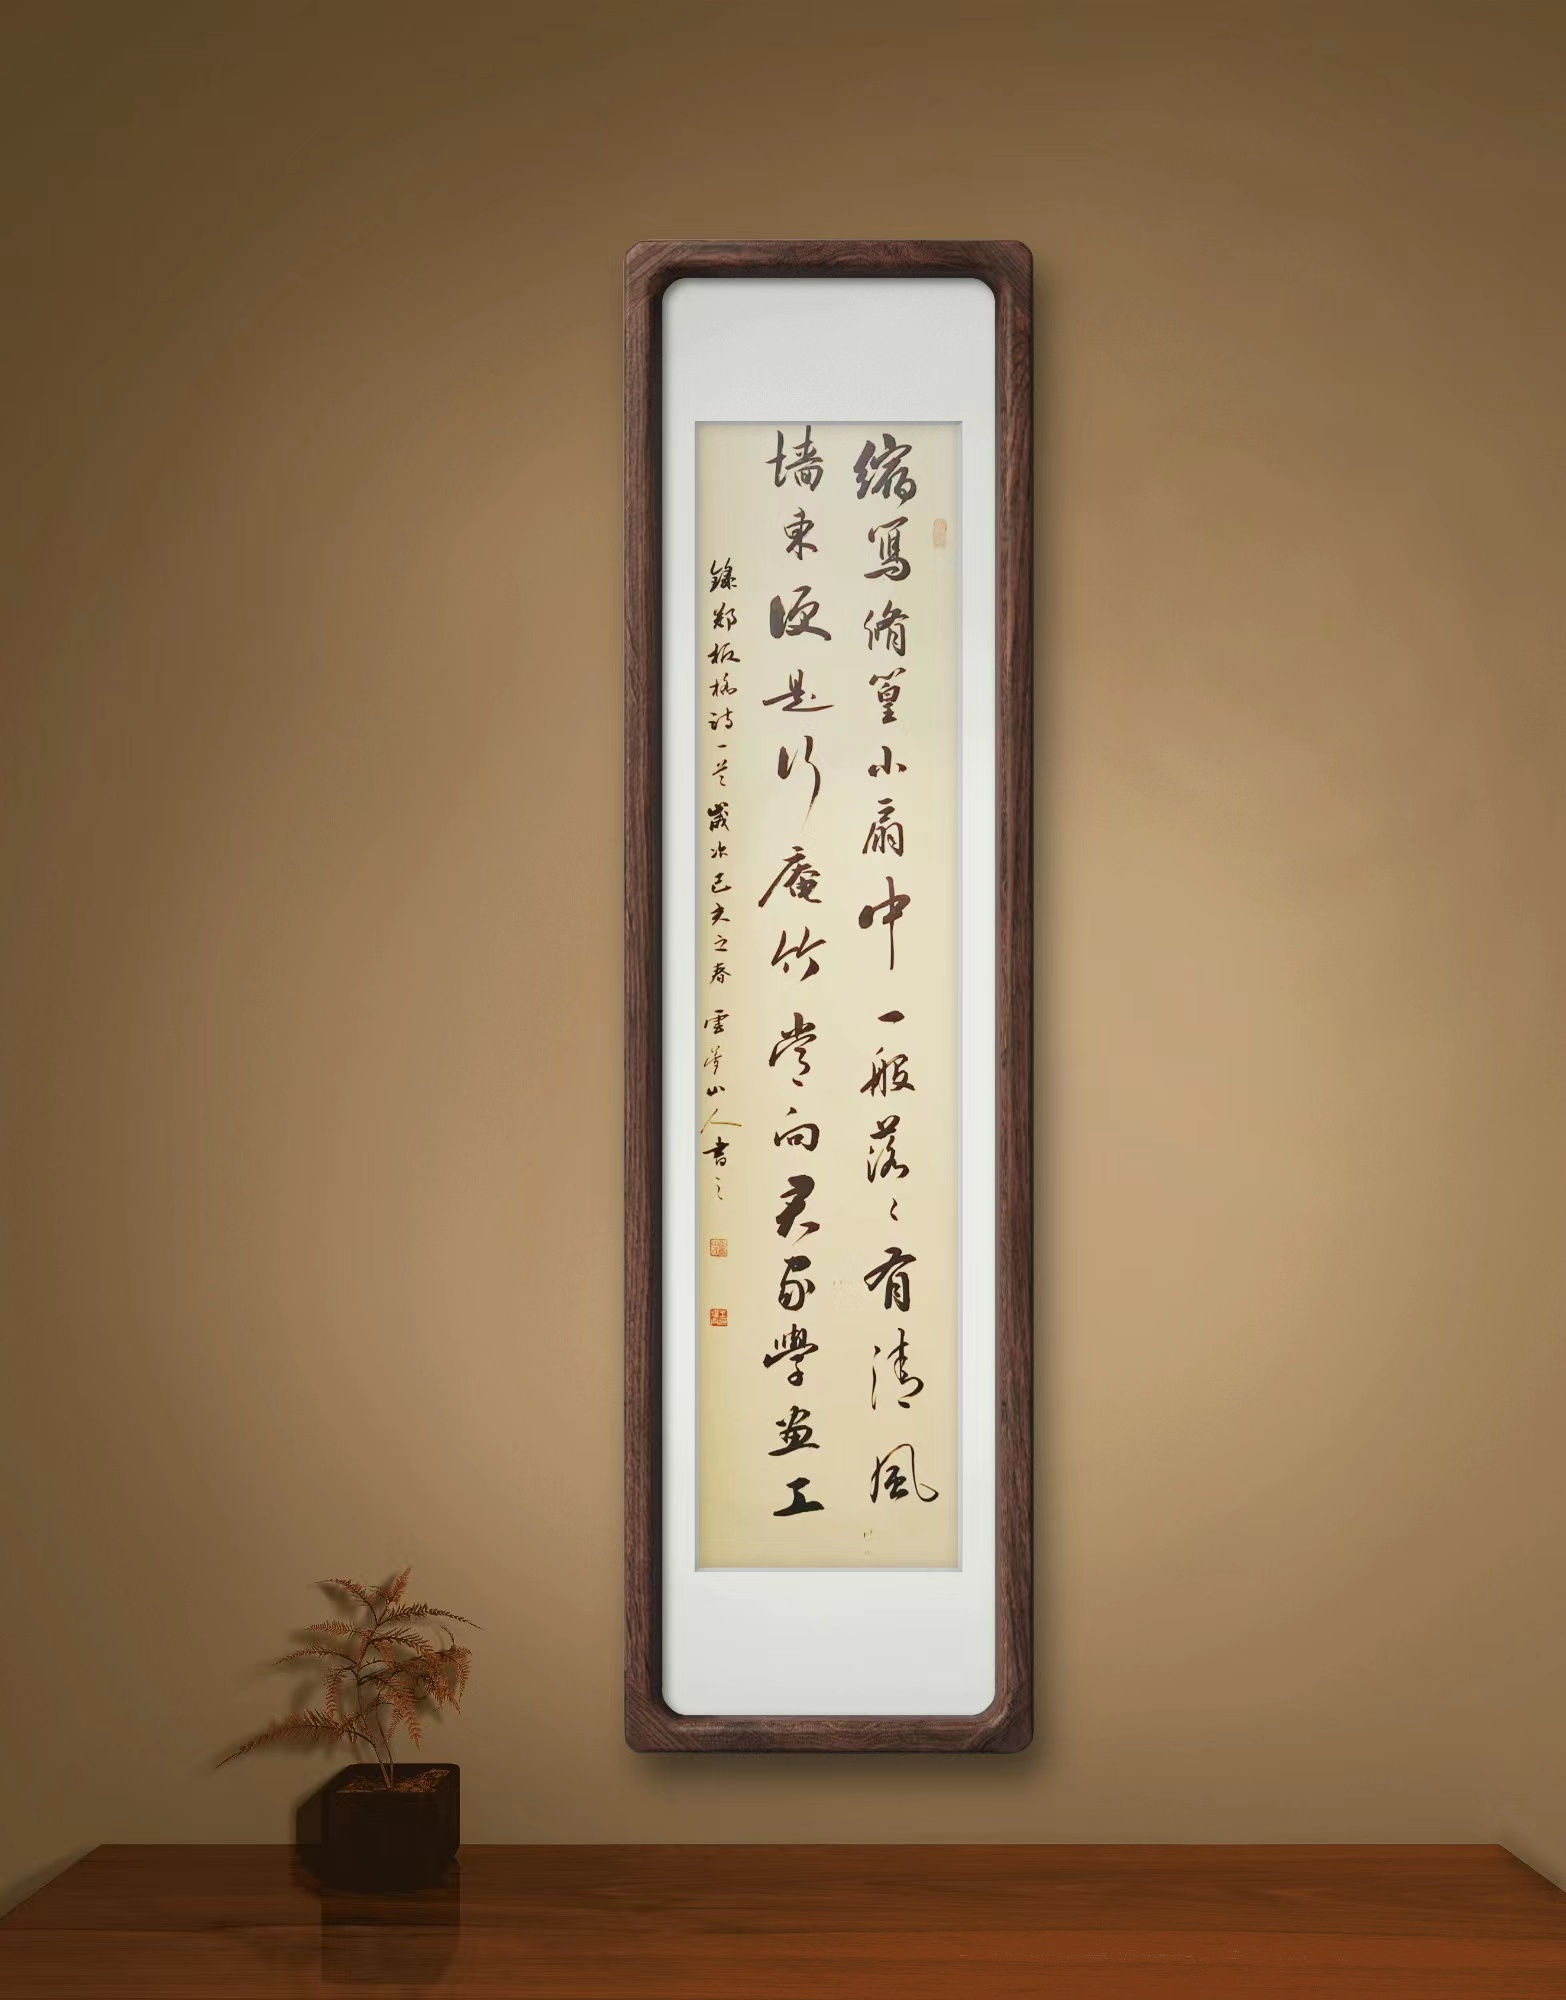 缩寫脩篁小扇中一般落〻有清風
墙東便是行庵竹常向君家學畫工
錄鄭板橋詩一首歲次己亥之春雲夢山人書之